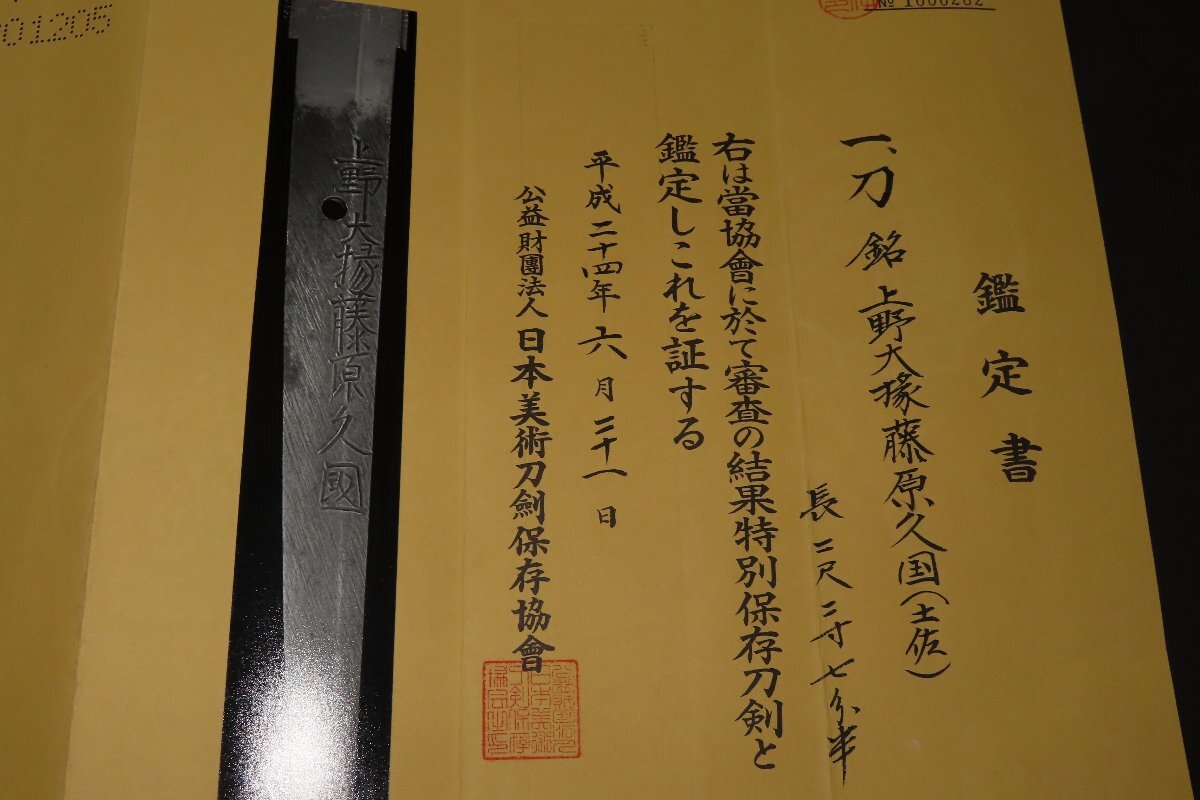 鑑定書
一、刀 銘 上野大掾藤原久国(土佐)
長二尺二寸七分半
右は當協會に於て審査の結果特別保存刀剣と
鑑定しこれを証する
平成二十四年六月二十一日
公益財團法人 日本美術刀劍保存協會
上野大掾藤原久國
01205
№ 1000262